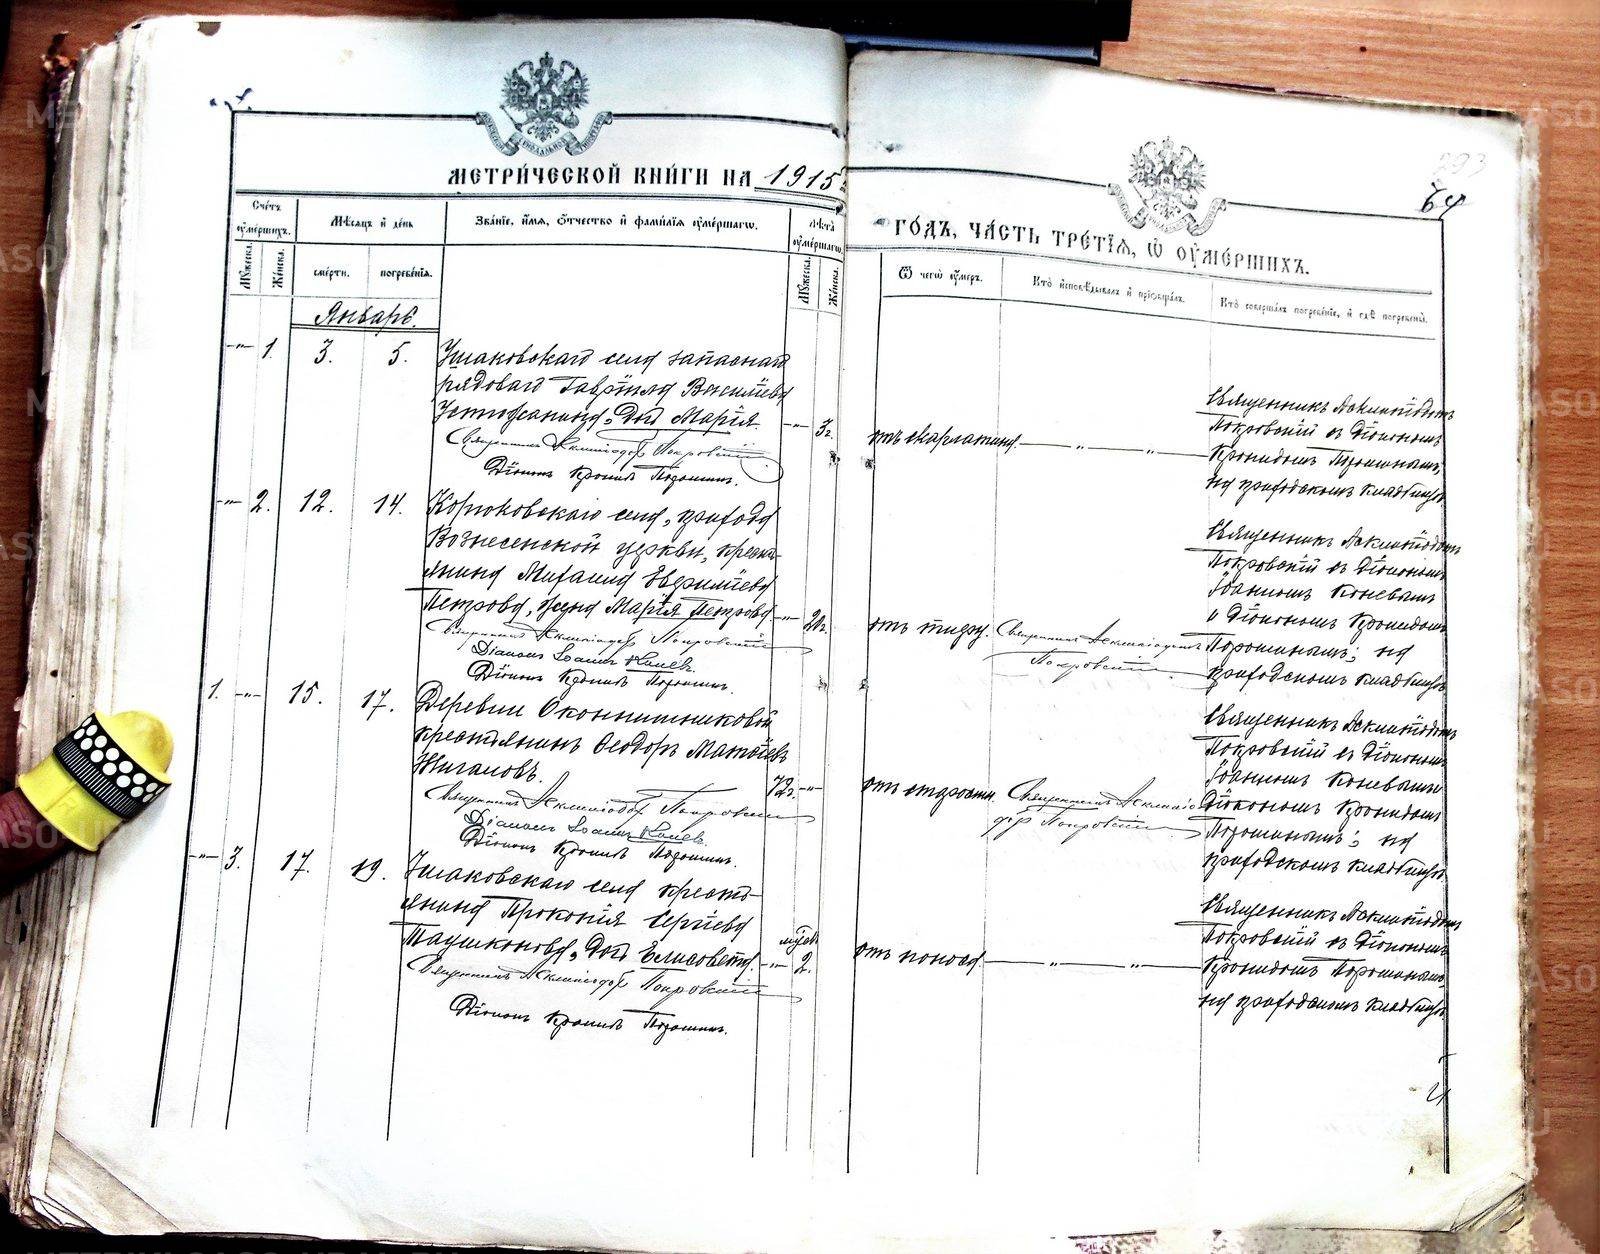 МЕТРИЧЕСКОЙ КНИГИ НА 1915
ГОДЪ, ЧАСТЬ ТРЕТІЯ, Ѽ ОУМЕРШИХЪ.
64
293
Счетъ оумершихъ.
Мужеска.
Женска.
Мѣсяцъ и день
смерти.
погребенія.
Званіе, имя, отчество и фамилія оумершагѡ.
Лѣта оумершагѡ
Мужеска.
Женска.
Ѿ чегѡ оумеръ.
Кто исповѣдывалъ и пріобщалъ.
Кто совершалъ погребеніе, и гдѣ погребены.
Январь.
-"- 1. 3. 5.
Ушаковскаго села запаснаго
рядоваго Гавріила Василіева
Устюжанина, дочь Марія.
-"- 3г.
Священникъ Асклипіодотъ Покровскій
Діаконъ Кронидъ Порошинъ.
отъ скарлатины.
Священникъ Асклипіодотъ
Покровскій съ Діакономъ
Кронидомъ Порошинымъ,
на приходскомъ кладбищѣ
-"- 2. 12. 14.
Корюковскаго села, прихода
Вознесенской церкви, кресть-
янина Михаила Евфиміева
Петрова, жена Марія Петрова.
-"- 20г.
Священникъ Асклипіодотъ Покровскій
Діаконъ Іоаннъ Коневъ.
Діаконъ Кронидъ Порошинъ.
отъ тифу.
Священникъ Асклипіодотъ
Покровскій.
Священникъ Асклипіодотъ
Покровскій съ Діакономъ
Іоанномъ Коневымъ
и Діакономъ Кронидомъ
Порошинымъ; на
приходскомъ кладбищѣ
1. -"- 15. 17.
Деревни Оконишниковой
крестьянинъ Ѳеодоръ Матѳіевъ
Жигаловъ.
72г. -"-
Священникъ Асклипіодотъ Покровскій
Діаконъ Іоаннъ Коневъ.
Діаконъ Кронидъ Порошинъ.
отъ старости.
Священникъ Асклипіо-
дотъ Покровскій
Священникъ Асклипіодотъ
Покровскій съ Діакономъ
Іоанномъ Коневымъ
Діакономъ Кронидомъ
Порошинымъ; на
приходскомъ кладбищѣ
-"- 3. 17. 19.
Ушаковскаго села кресть-
янина Прокопія Сергіева
Таушканова, дочь Елисавета.
мѣсяц.
-"- 2.
Священникъ Асклипіодотъ Покровскій
Діаконъ Кронидъ Порошинъ.
отъ поноса
Священникъ Асклипіодотъ
Покровскій съ Діакономъ
Кронидомъ Порошинымъ,
на приходскомъ кладбищѣ